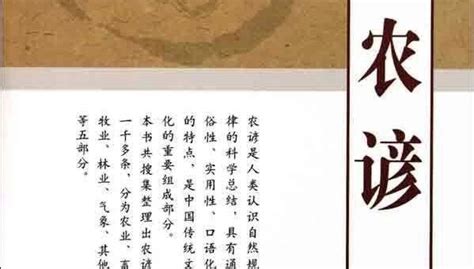 农谚
农谚是人类认识自然规
律的科学总结，具有通
俗性、实用性、口语化
的特点，是中国传统文
化的重要组成部分。
本书共搜集整理出农谚
一千多条，分为农业、畜
牧业、林业、气象、其他
等五部分。